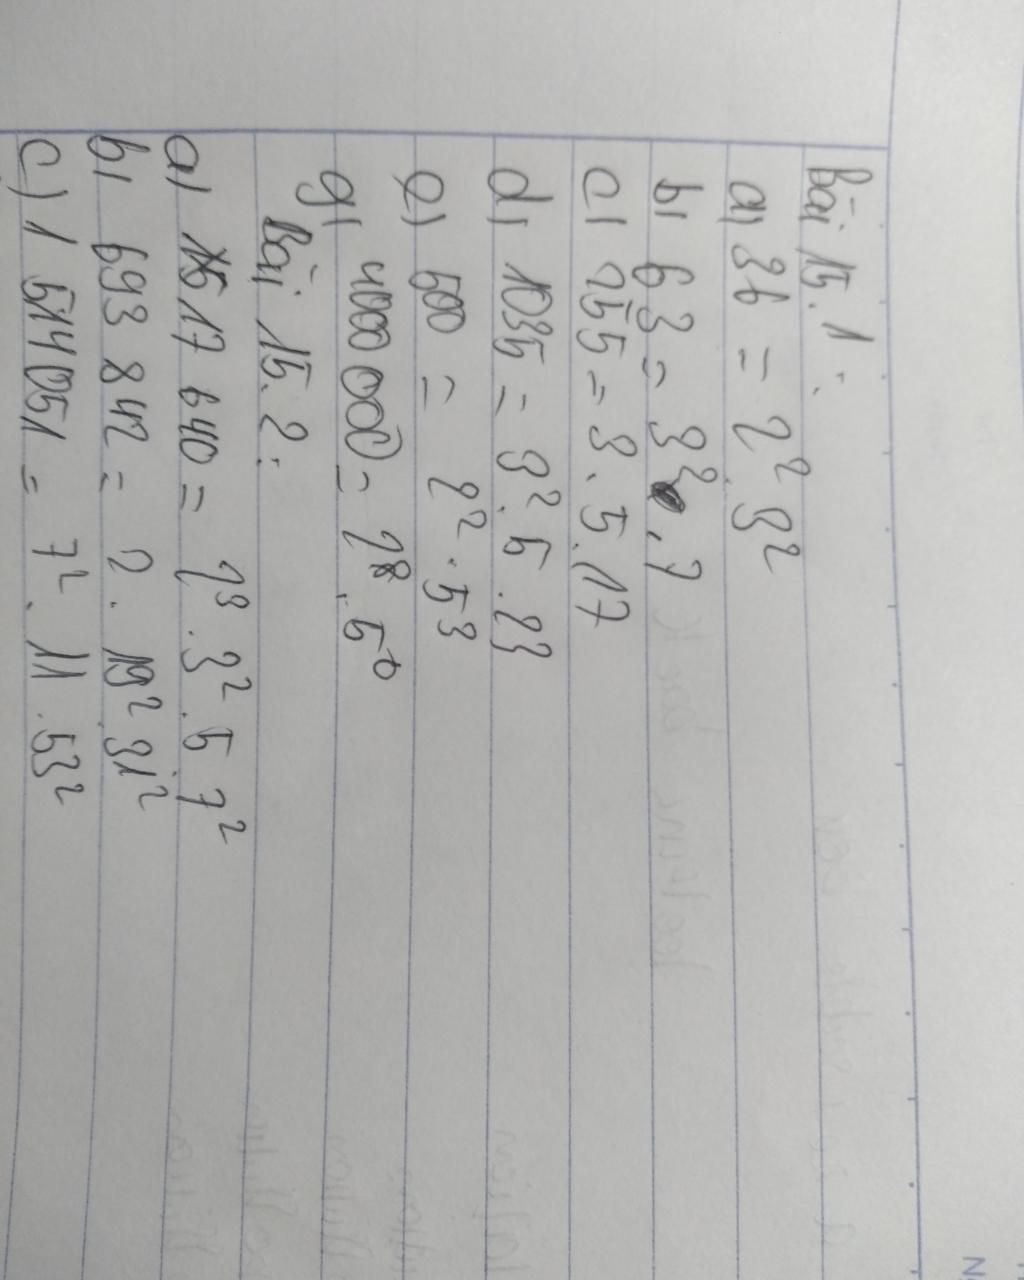 Bài 15.1:
a) 36 = 2².3²
b) 63 = 3².7
c) 255 = 3.5.17
d) 1035 = 3².5.23
e) 500 = 2².5³
g) 4000 000 = 2⁸.5⁶
Bài 15.2:
a) 1517 640 = 2³.3².5 7²
b) 693 842 = 2.19².31²
c) 1 514 051 = 7².11.53²
N